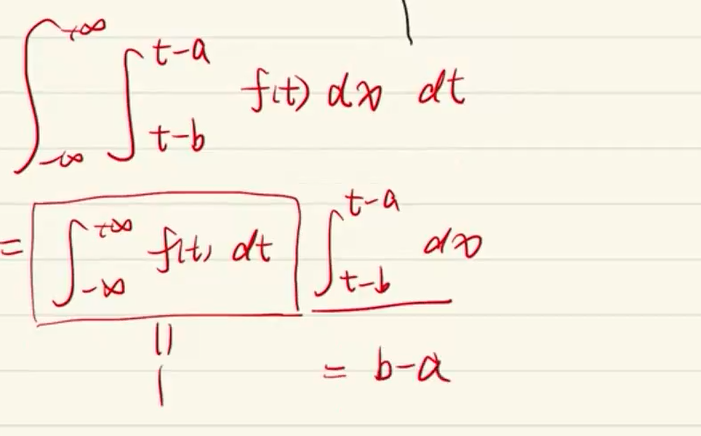 ∫_{-∞}^{+∞} ∫_{t-b}^{t-a} f(t) dx dt
= ∫_{-∞}^{+∞} f(t) dt ∫_{t-b}^{t-a} dx
|| = b-a
1